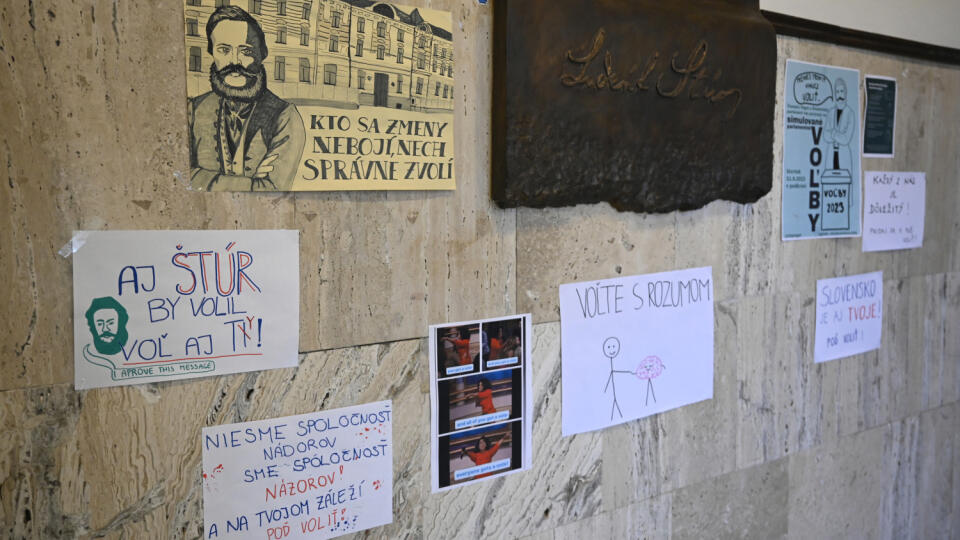 KTO SA ZMENY
NEBOJÍ, NECH
SPRÁVNE ZVOLÍ
Ľudovít Štúr
simulované
VOĽBY
VOĽBY
2023
KAŽDÝ Z NÁS
JE
DÔLEŽITÝ!
AJ ŠTÚR
BY VOLIL
VOĽ AJ TY!
I APROVE THIS MESSAGE
VOĽTE S ROZUMOM
SLOVENSKO
JE AJ TVOJE!
POĎ VOLIŤ!
and all of you get a vote
everyone gets a vote!
NIESME SPOLOČNOSŤ
NÁDOROV
SME SPOLOČNOSŤ
NÁZOROV!
A NA TVOJOM ZÁLEŽÍ
POĎ VOLIŤ!